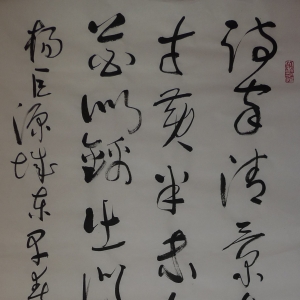 诗家清景
才黄半未
花似锦出门
杨巨源城东早春